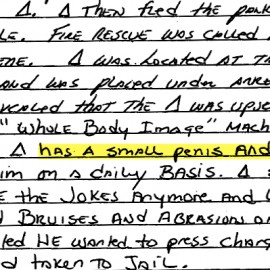 Δ. Δ THEN fled the park
LE. FIRE RESCUE WAS CALLED
ENE. Δ WAS LOCATED AT T
AND WAS PLACED UNDER ARRE
EVEALED THAT THE Δ WAS UPSE
"WHOLE BODY IMAGE" MACH
Δ HAS A SMALL PENIS AND
IM ON A DAILY BASIS. Δ S
E THE JOKES ANYMORE AND
D BRUISES AND ABRASION O
TED HE WANTED TO PRESS CHARG
D TAKEN TO JAIL.